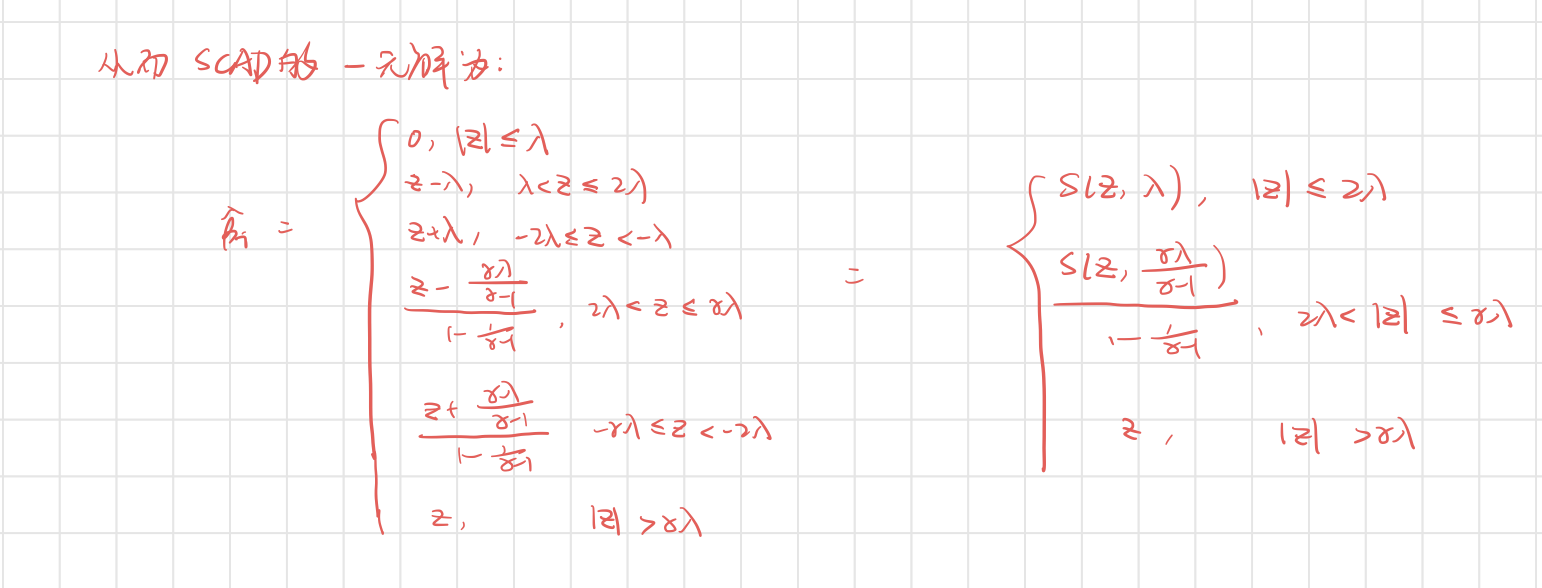 从而 SCAD的一元解为:
0, |z| ≤ λ
z-λ, λ<z ≤ 2λ
z+λ, -2λ≤z <-λ
β̂ᵢ = { (z - γλ/(γ-1)) / (1 - 1/(γ-1)), 2λ< z ≤ γλ
(z + γλ/(γ-1)) / (1 - 1/(γ-1)) -γλ ≤ z < -2λ
z, |z| >γλ
= { S(z, λ), |z| ≤ 2λ
S(z, γλ/(γ-1)) / (1 - 1/(γ-1)), 2λ< |z| ≤ γλ
z, |z| >γλ